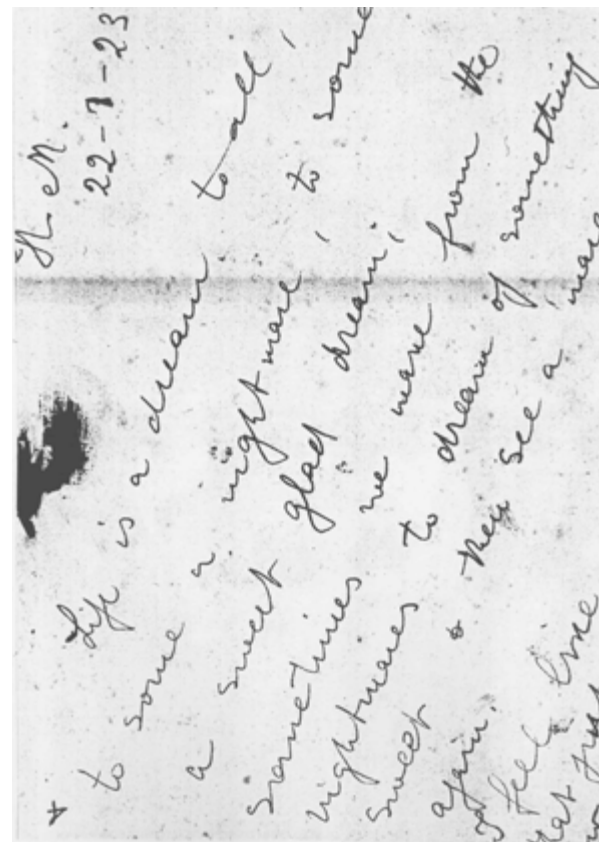 H. M.
22-7-23
Life is a dream to all,
to some a nightmare, to some
a sweet glad dream,
sometimes we wake from the
nightmares to dream of something
sweet & then see a mare
again.
feel like
that